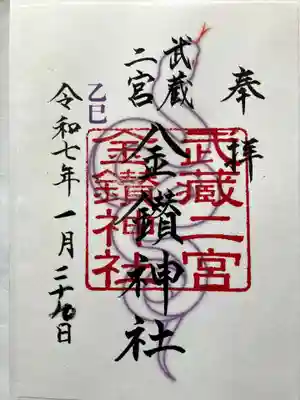 奉拝
武蔵
二宮
金鑚神社
武蔵二宮
金鑚神社
乙巳
令和七年一月二十九日